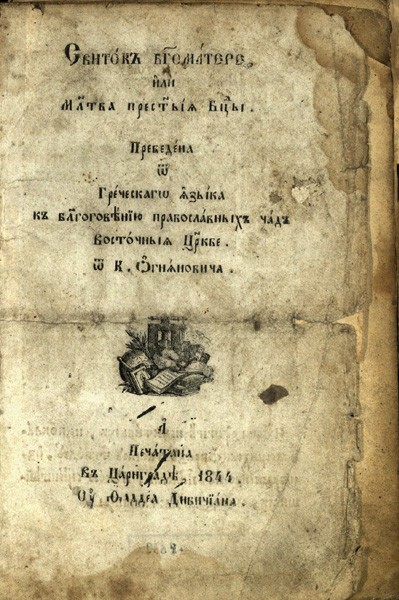 Свито́къ бг҃ома́тере,
и҆лѝ
Мл҃тва прест҃ы́ѧ бц҃ы.
Преведе́на
ѿ
Гре́ческагѡ ѧ҆зы́ка
къ бл҃гоговѣ́нїю правосла́вныхъ ча́дъ
восто́чныѧ цр҃кве.
ѿ К. Ѻ҆гнѧ́новича.
А҆
Печа́тана
Въ Цариградѣ, 1844
Оу҆ Ѳаддеа Дивичїа́на.